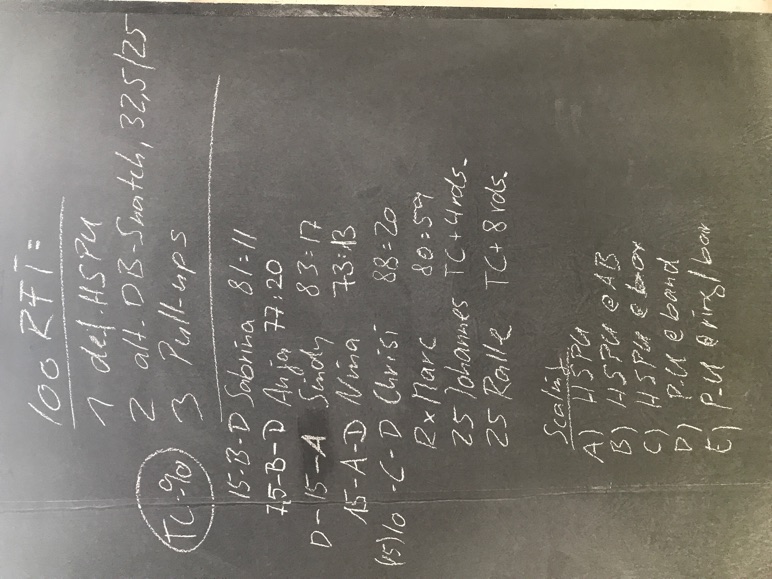 100 RFT:
1 def. HSPU
2 alt. DB-Snatch, 32,5/25
3 Pull-ups
TC=90
15-B-D Sabrina 81:11
7,5-B-D Anja 77:20
D-15-A Sindy 83:17
15-A-D Nina 73:13
(15)10-C-D Chrisi 88:20
Rx Marc 80:59
25 Johannes TC+4rds.
25 Ralle TC+8rds.
Scaling
A) HSPU
B) HSPU @AB
C) HSPU @box
D) P-U @band
E) P-U @ring/bar